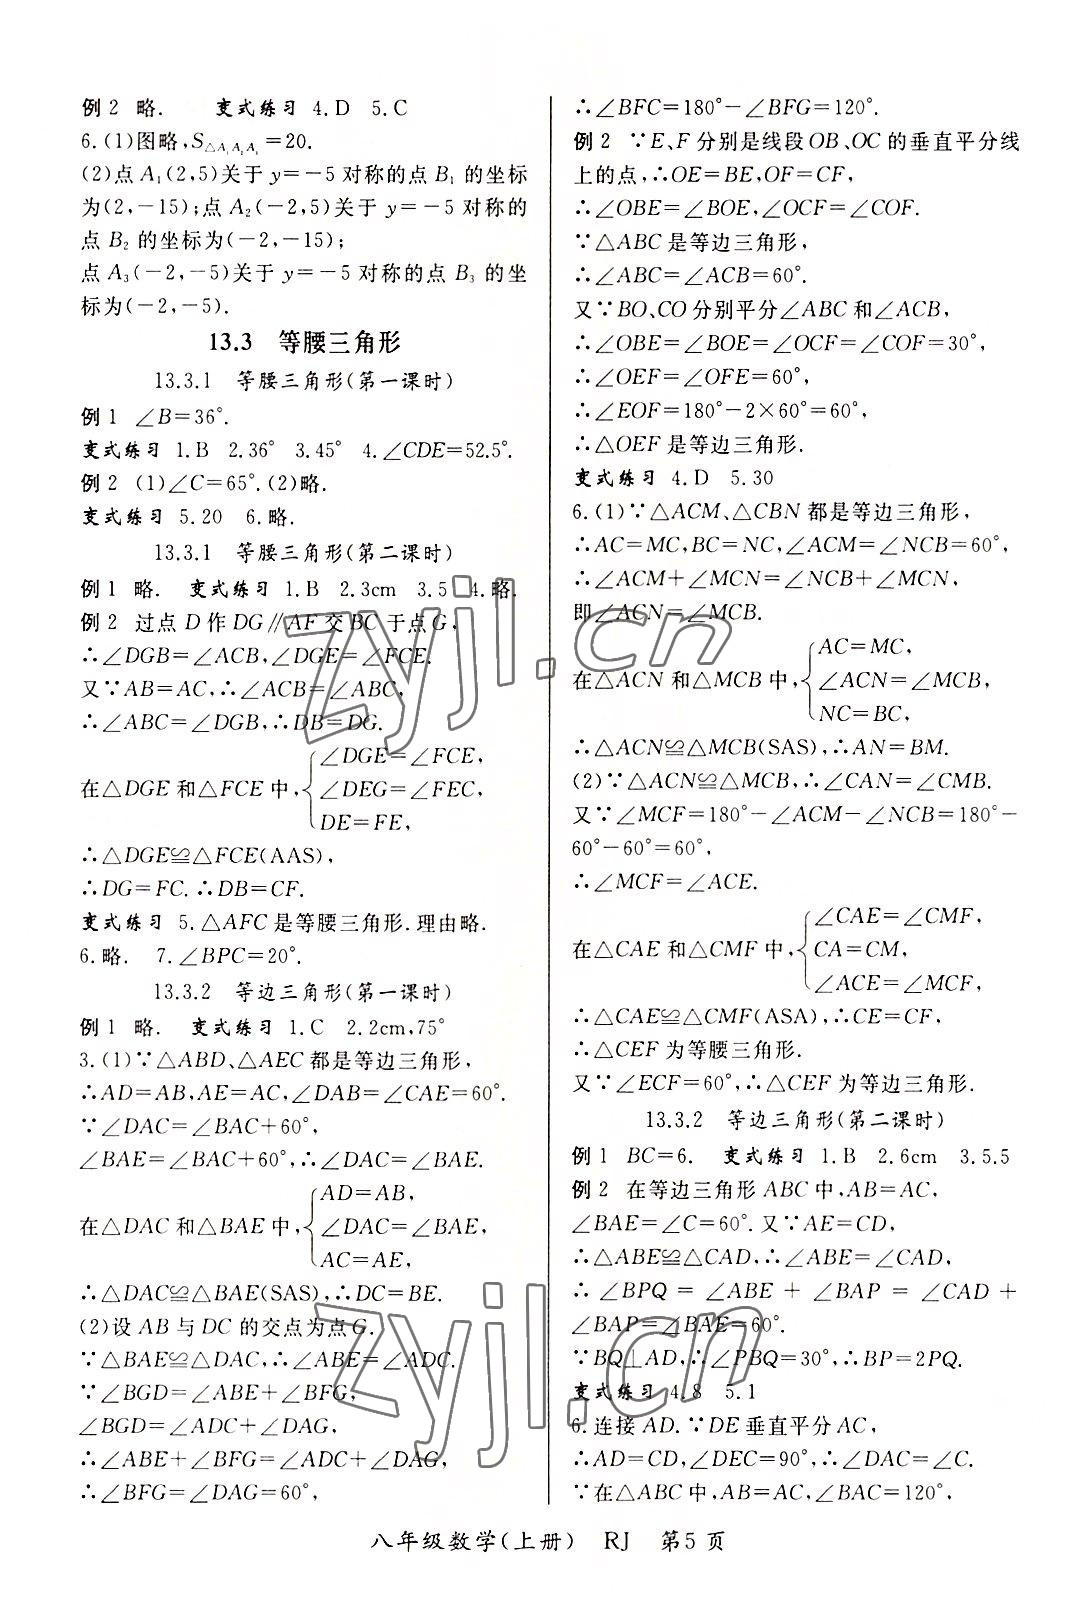 例2 略. 变式练习 4.D 5.C
6.(1)图略,S△A₁A₂A₃=20.
(2)点A₁(2,5)关于y=-5对称的点B₁的坐标
为(2,-15);点A₂(-2,5)关于y=-5对称的
点B₂的坐标为(-2,-15);
点A₃(-2,-5)关于y=-5对称的点B₃的坐
标为(-2,-5).
13.3 等腰三角形
13.3.1 等腰三角形(第一课时)
例1 ∠B=36°.
变式练习 1.B 2.36° 3.45° 4.∠CDE=52.5°.
例2 (1)∠C=65°.(2)略.
变式练习 5.20 6.略.
13.3.1 等腰三角形(第二课时)
例1 略. 变式练习 1.B 2.3cm 3.5 4.略.
例2 过点D作DG∥AF交BC于点G,
∴∠DGB=∠ACB,∠DGE=∠FCE.
又∵AB=AC,∴∠ACB=∠ABC,
∴∠ABC=∠DGB,∴DB=DG.
∠DGE=∠FCE,
在△DGE和△FCE中,{∠DEG=∠FEC,
DE=FE,
∴△DGE≌△FCE(AAS),
∴DG=FC.∴DB=CF.
变式练习 5.△AFC是等腰三角形.理由略.
6.略. 7.∠BPC=20°.
13.3.2 等边三角形(第一课时)
例1 略. 变式练习 1.C 2.2cm,75°
3.(1)∵△ABD、△AEC都是等边三角形,
∴AD=AB,AE=AC,∠DAB=∠CAE=60°.
∵∠DAC=∠BAC+60°,
∠BAE=∠BAC+60°,∴∠DAC=∠BAE.
AD=AB,
在△DAC和△BAE中,{∠DAC=∠BAE,
AC=AE,
∴△DAC≌△BAE(SAS),∴DC=BE.
(2)设AB与DC的交点为点G.
∵△BAE≌△DAC,∴∠ABE=∠ADC.
∵∠BGD=∠ABE+∠BFG,
∠BGD=∠ADC+∠DAG,
∴∠ABE+∠BFG=∠ADC+∠DAG,
∴∠BFG=∠DAG=60°,
∴∠BFC=180°-∠BFG=120°.
例2 ∵E、F分别是线段OB、OC的垂直平分线
上的点,∴OE=BE,OF=CF,
∴∠OBE=∠BOE,∠OCF=∠COF.
∵△ABC是等边三角形,
∴∠ABC=∠ACB=60°.
又∵BO、CO分别平分∠ABC和∠ACB,
∴∠OBE=∠BOE=∠OCF=∠COF=30°,
∴∠OEF=∠OFE=60°,
∴∠EOF=180°-2×60°=60°,
∴△OEF是等边三角形.
变式练习 4.D 5.30
6.(1)∵△ACM、△CBN都是等边三角形,
∴AC=MC,BC=NC,∠ACM=∠NCB=60°,
∴∠ACM+∠MCN=∠NCB+∠MCN,
即∠ACN=∠MCB.
AC=MC,
在△ACN和△MCB中,{∠ACN=∠MCB,
NC=BC,
∴△ACN≌△MCB(SAS),∴AN=BM.
(2)∵△ACN≌△MCB,∴∠CAN=∠CMB.
又∵∠MCF=180°-∠ACM-∠NCB=180°-
60°-60°=60°,
∴∠MCF=∠ACE.
∠CAE=∠CMF,
在△CAE和△CMF中,{CA=CM,
∠ACE=∠MCF,
∴△CAE≌△CMF(ASA),∴CE=CF,
∴△CEF为等腰三角形.
又∵∠ECF=60°,∴△CEF为等边三角形.
13.3.2 等边三角形(第二课时)
例1 BC=6. 变式练习 1.B 2.6cm 3.5.5
例2 在等边三角形ABC中,AB=AC,
∠BAE=∠C=60°.又∵AE=CD,
∴△ABE≌△CAD,∴∠ABE=∠CAD,
∴∠BPQ=∠ABE+∠BAP=∠CAD+
∠BAP=∠BAE=60°.
∵BQ⊥AD,∴∠PBQ=30°,∴BP=2PQ.
变式练习 4.8 5.1
6.连接AD.∵DE垂直平分AC,
∴AD=CD,∠DEC=90°,∴∠DAC=∠C.
∵在△ABC中,AB=AC,∠BAC=120°,
八年级数学(上册) RJ 第5页
zyjl.cn
zyjl.cn